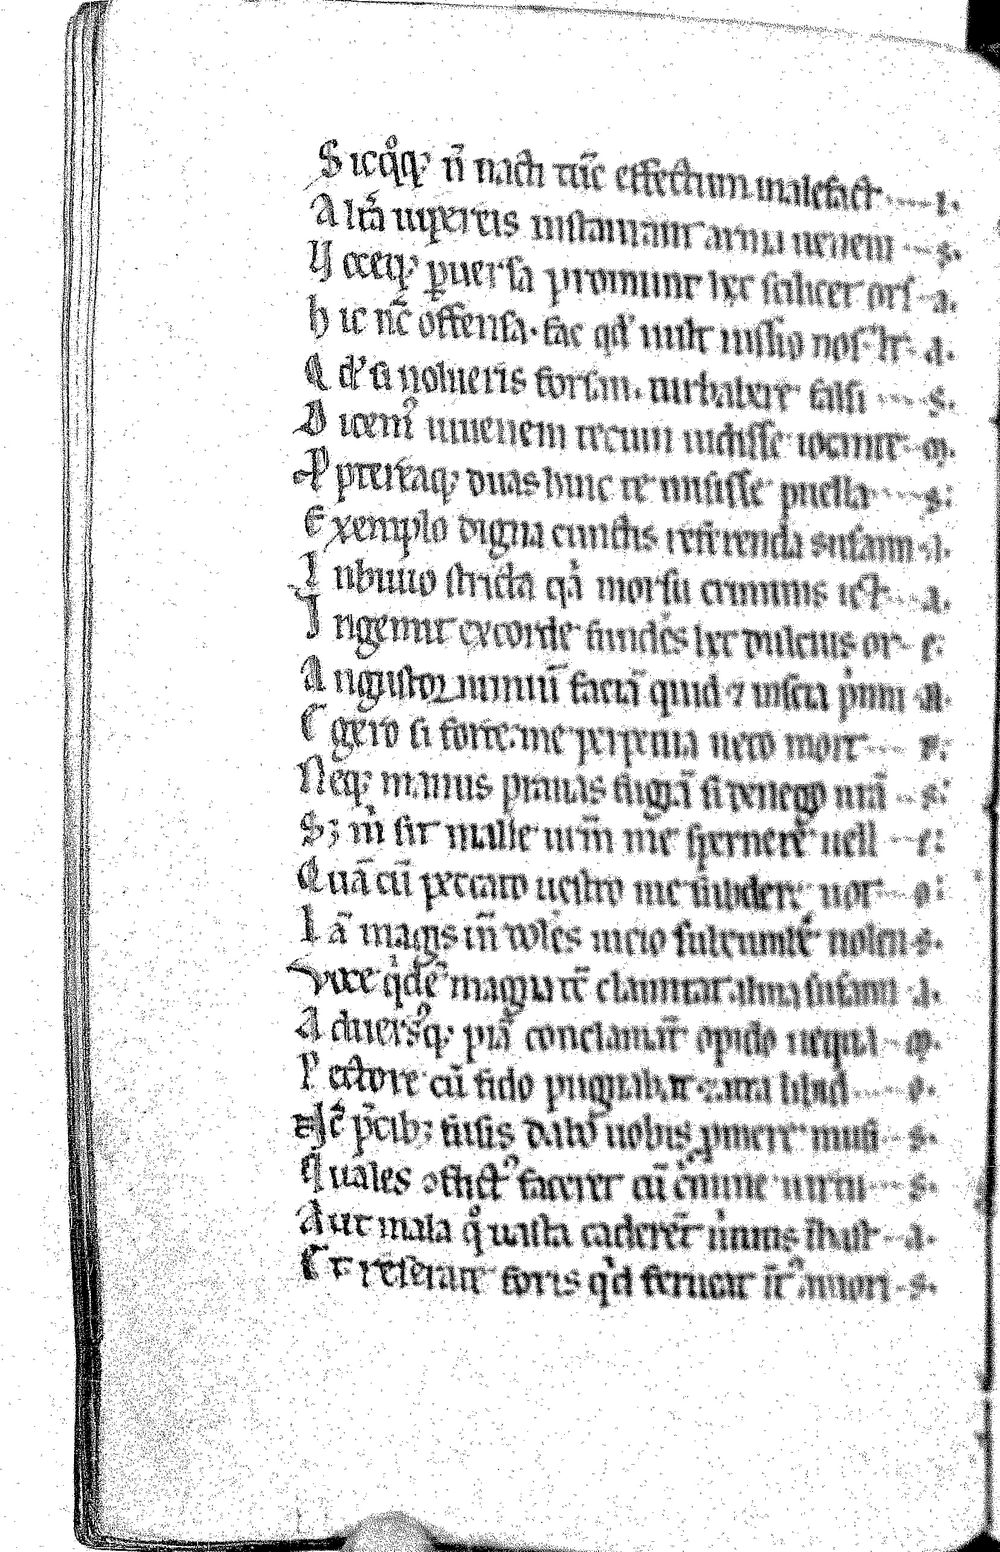 Sicq̊q; n̄ nacti tūc effectum malefact .... i.
Altā uipereis instamant arma uenem ... s.
Uoceq; ꝑuersa promunt hec scilicet ors .. a.
hic nc̄ offensa. fac qd' uult iussio nos- tr. a.
Qd' si nolueris forsan. turbabere falsi .... s.
Dicem' iuuenem tecum uidisse iocante .. m.
Ppterēaq; duas hinc te misisse puella .... s:
Exemplo digna cunctis referenda susann . a.
Inbiuio stricta qa morsu criminis ict ... a.
Ingemit excorde fundēs hec dulcius or .. e:
Angustoꝝ nimiū faciā quid ⁊ inscia pimi . a.
Egero si forte. me perpetua uero mort ... e:
Neq; manus prauas fugiā si denego urā .. s:
S; m̄ sit malle uirm̄ me spernere uell ... e:
Quā cū peccato uestro me subdere uot ... o:
Iā magis in̄ toles uicio fulcumtē nolen . s.
Voce qidē magna tc̄ clamitat alma susann . a.
Aduersꝰq; piā conclamār opido nequa .. m.
Pectore cū fido pugnabat zara libid .... o.
Hc̄ p̄cib; fusis dato uobis ꝓmere musi .. s.
Quales ↄflictꝰ faceret cū cimine uirtu ... s.
Aut mala q̊ uasta caderet minis illust .. a.
Et reserate foris qd feruear ir' amori . s.